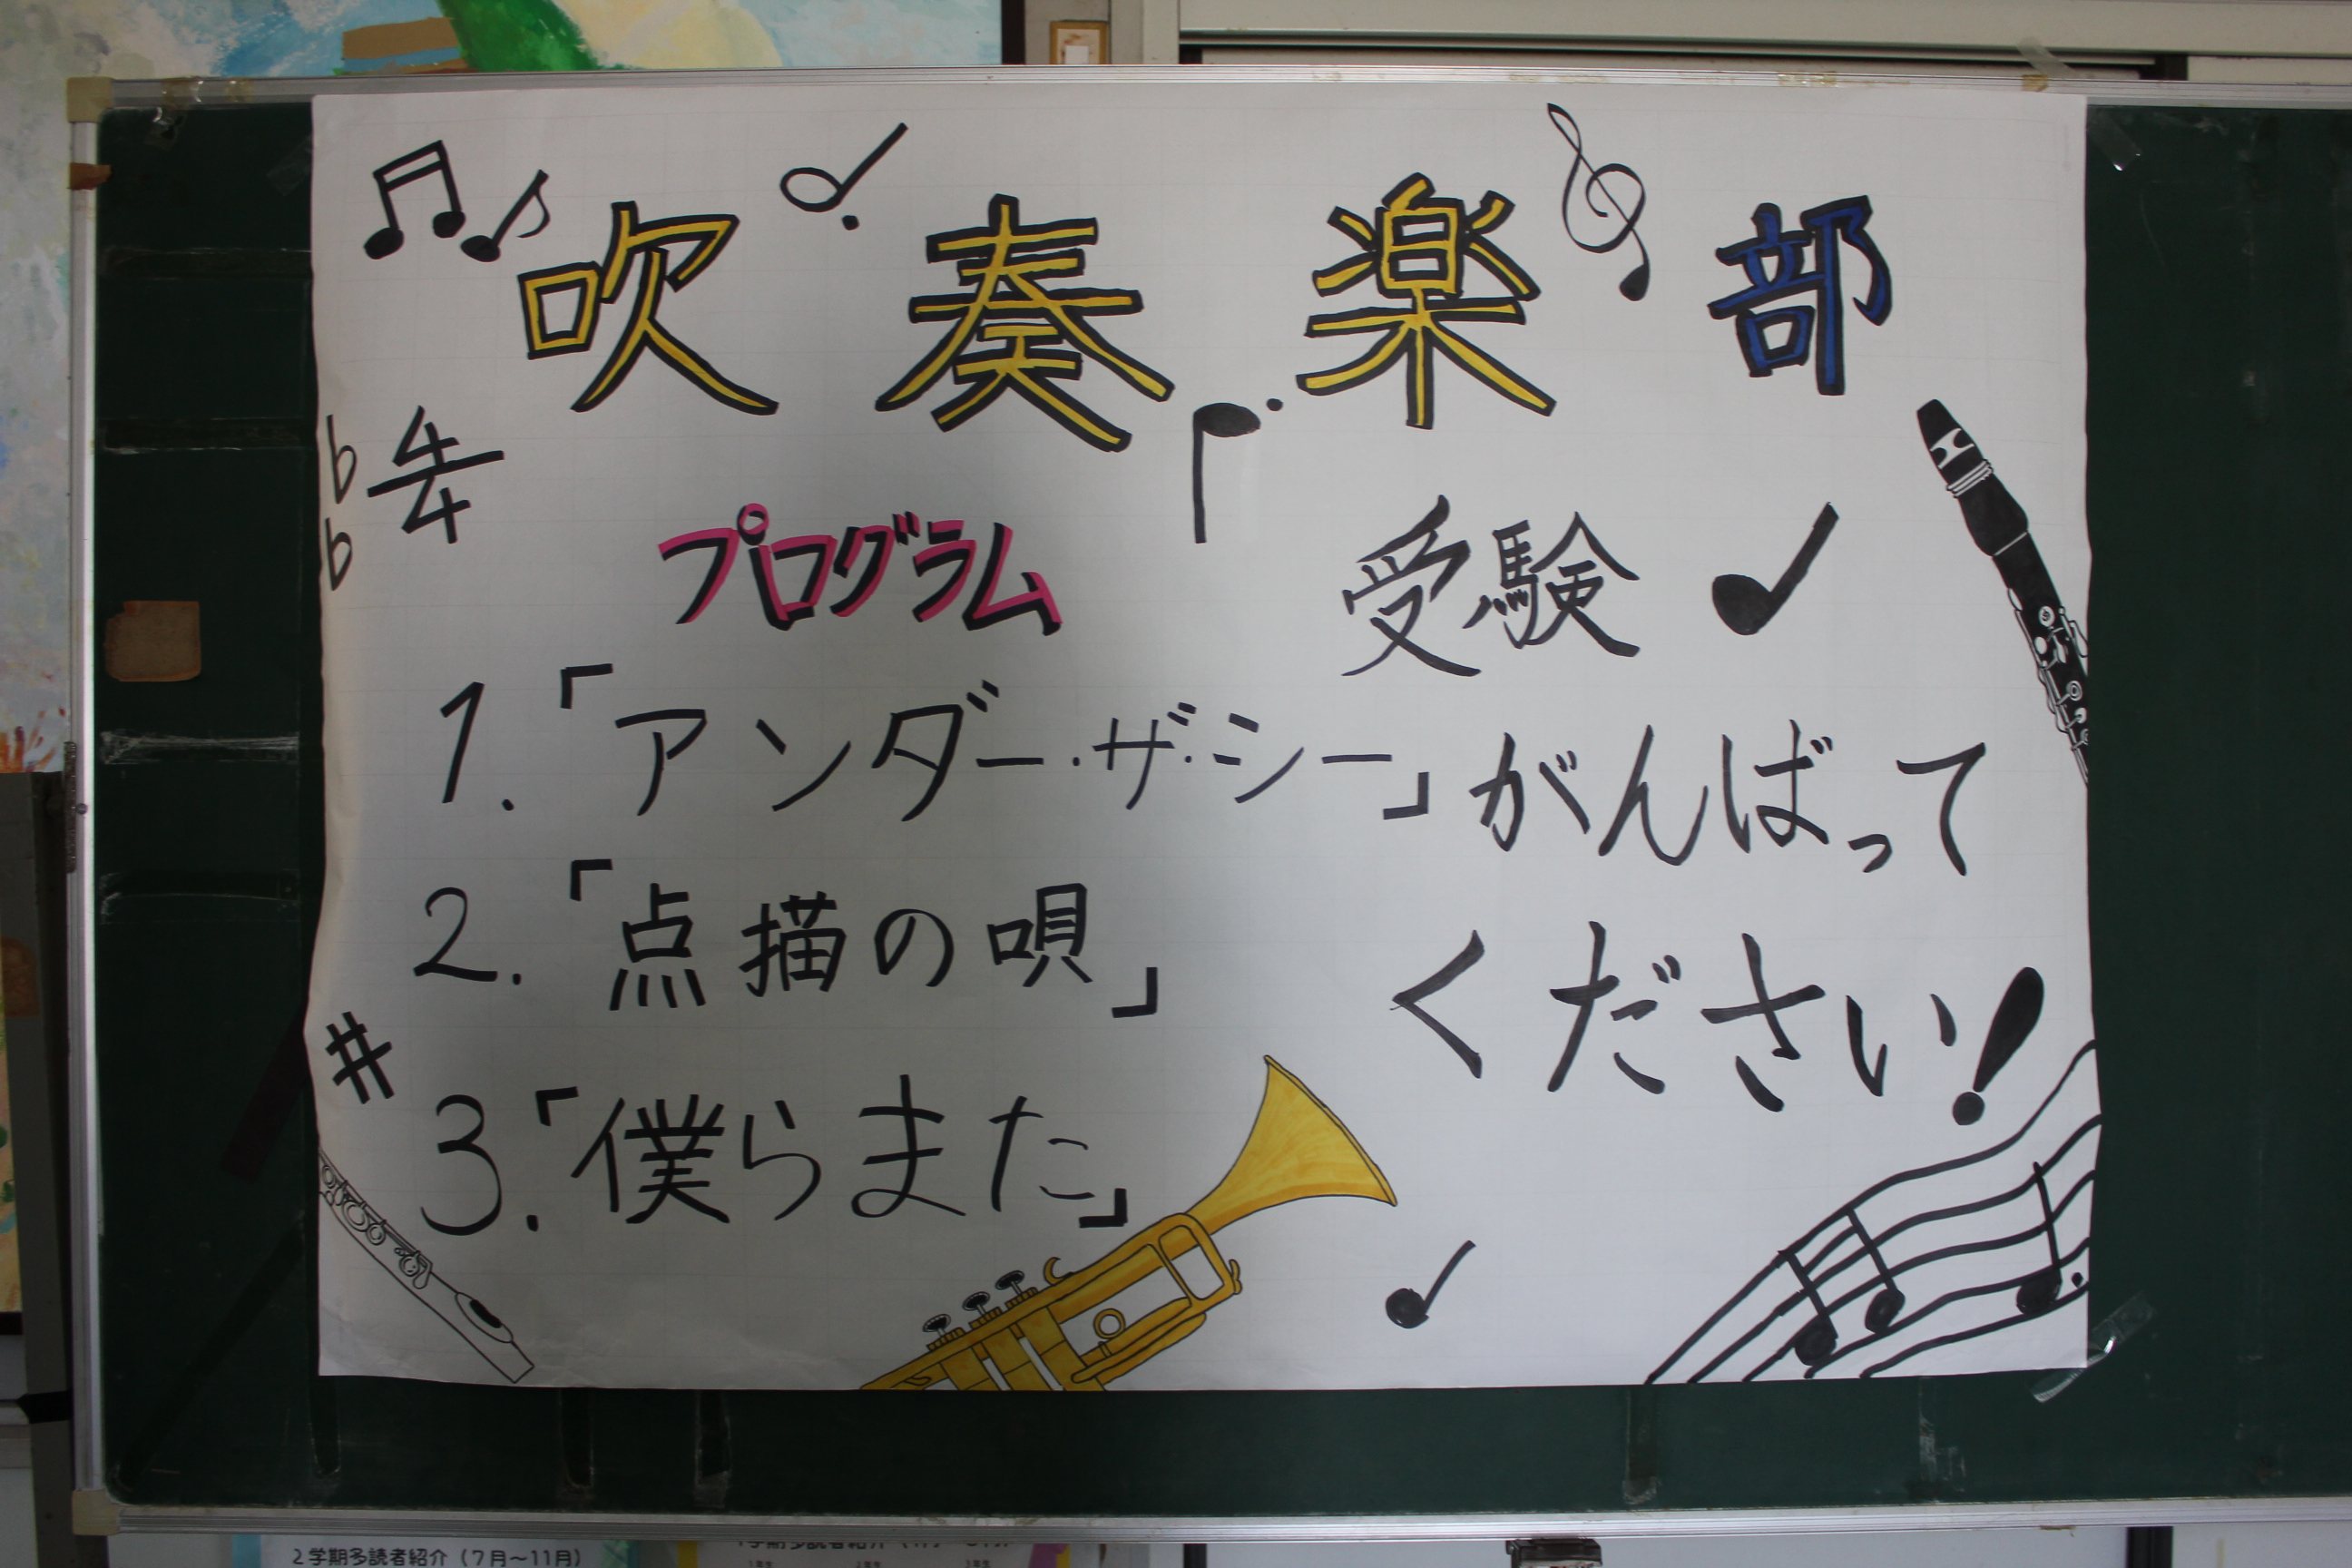 吹奏楽部
プログラム
1.「アンダー・ザ・シー」
2.「点描の唄」
3.「僕らまた」
受験
がんばって
ください!
2学期多読者紹介(7月~11月)
1年生 2年生 3年生